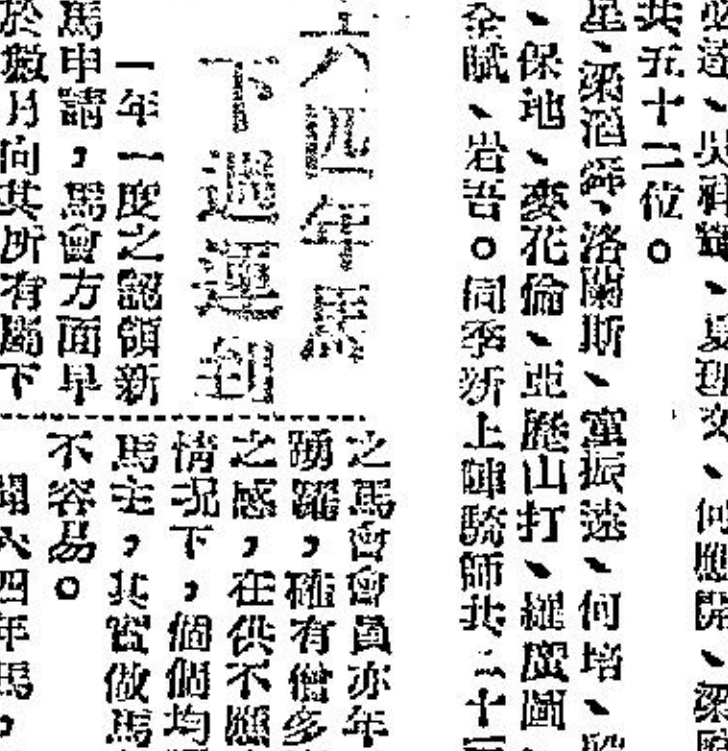 必達、吳祥輝、夏理文、何應開、梁
共五十二位。
星、梁滔舜、洛蘭斯、童振遠、何培、
、保地、麥花倫、亞歷山打、羅廣圖、
全賦、岩吾。同季新上陣騎師共二十
六四年馬
下週運到
一年一度之認領新
馬申請，馬會方面早
於數月向其所有屬下
之馬會會員亦年
踴躍，確有僧多
之感，在供不應
情况下，個個均
馬主，其實做馬
不容易。
聞六四年馬，